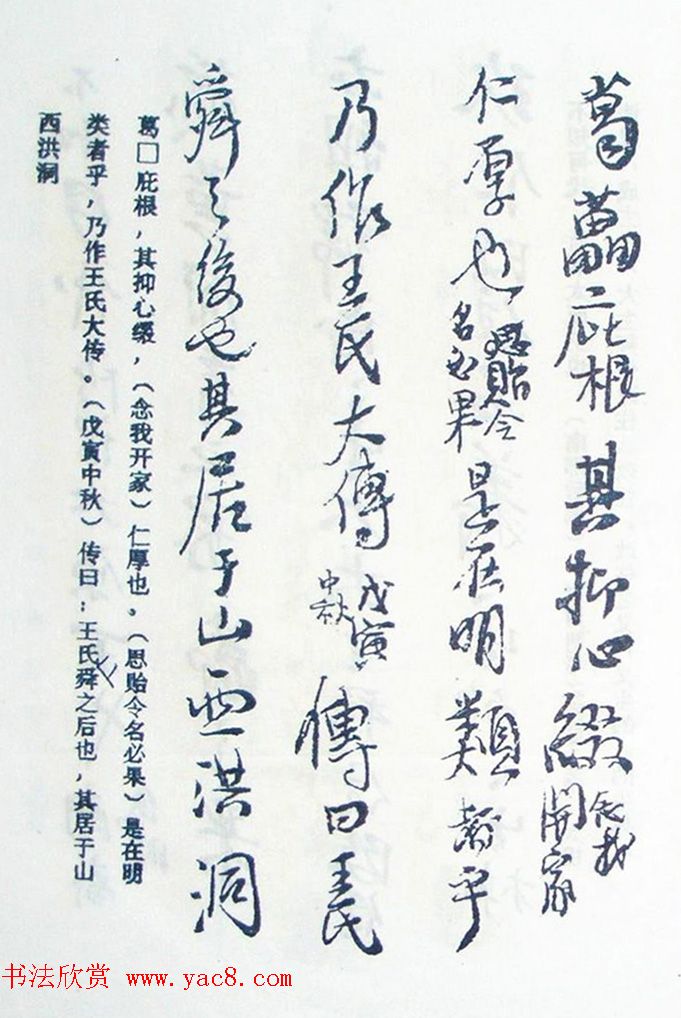 葛藟庇根其抑心綴念我開家
仁厚也思貽令名必果是在明類者乎
乃作王氏大傳戊寅中秋傳曰王氏
舜之後也其居于山西洪洞
葛□庇根，其抑心缀，（念我开家）仁厚也。（思贻令名必果）是在明
类者乎，乃作王氏大传。（戊寅中秋）传曰：王氏舜之后也，其居于山
西洪洞
书法欣赏 www.yac8.com